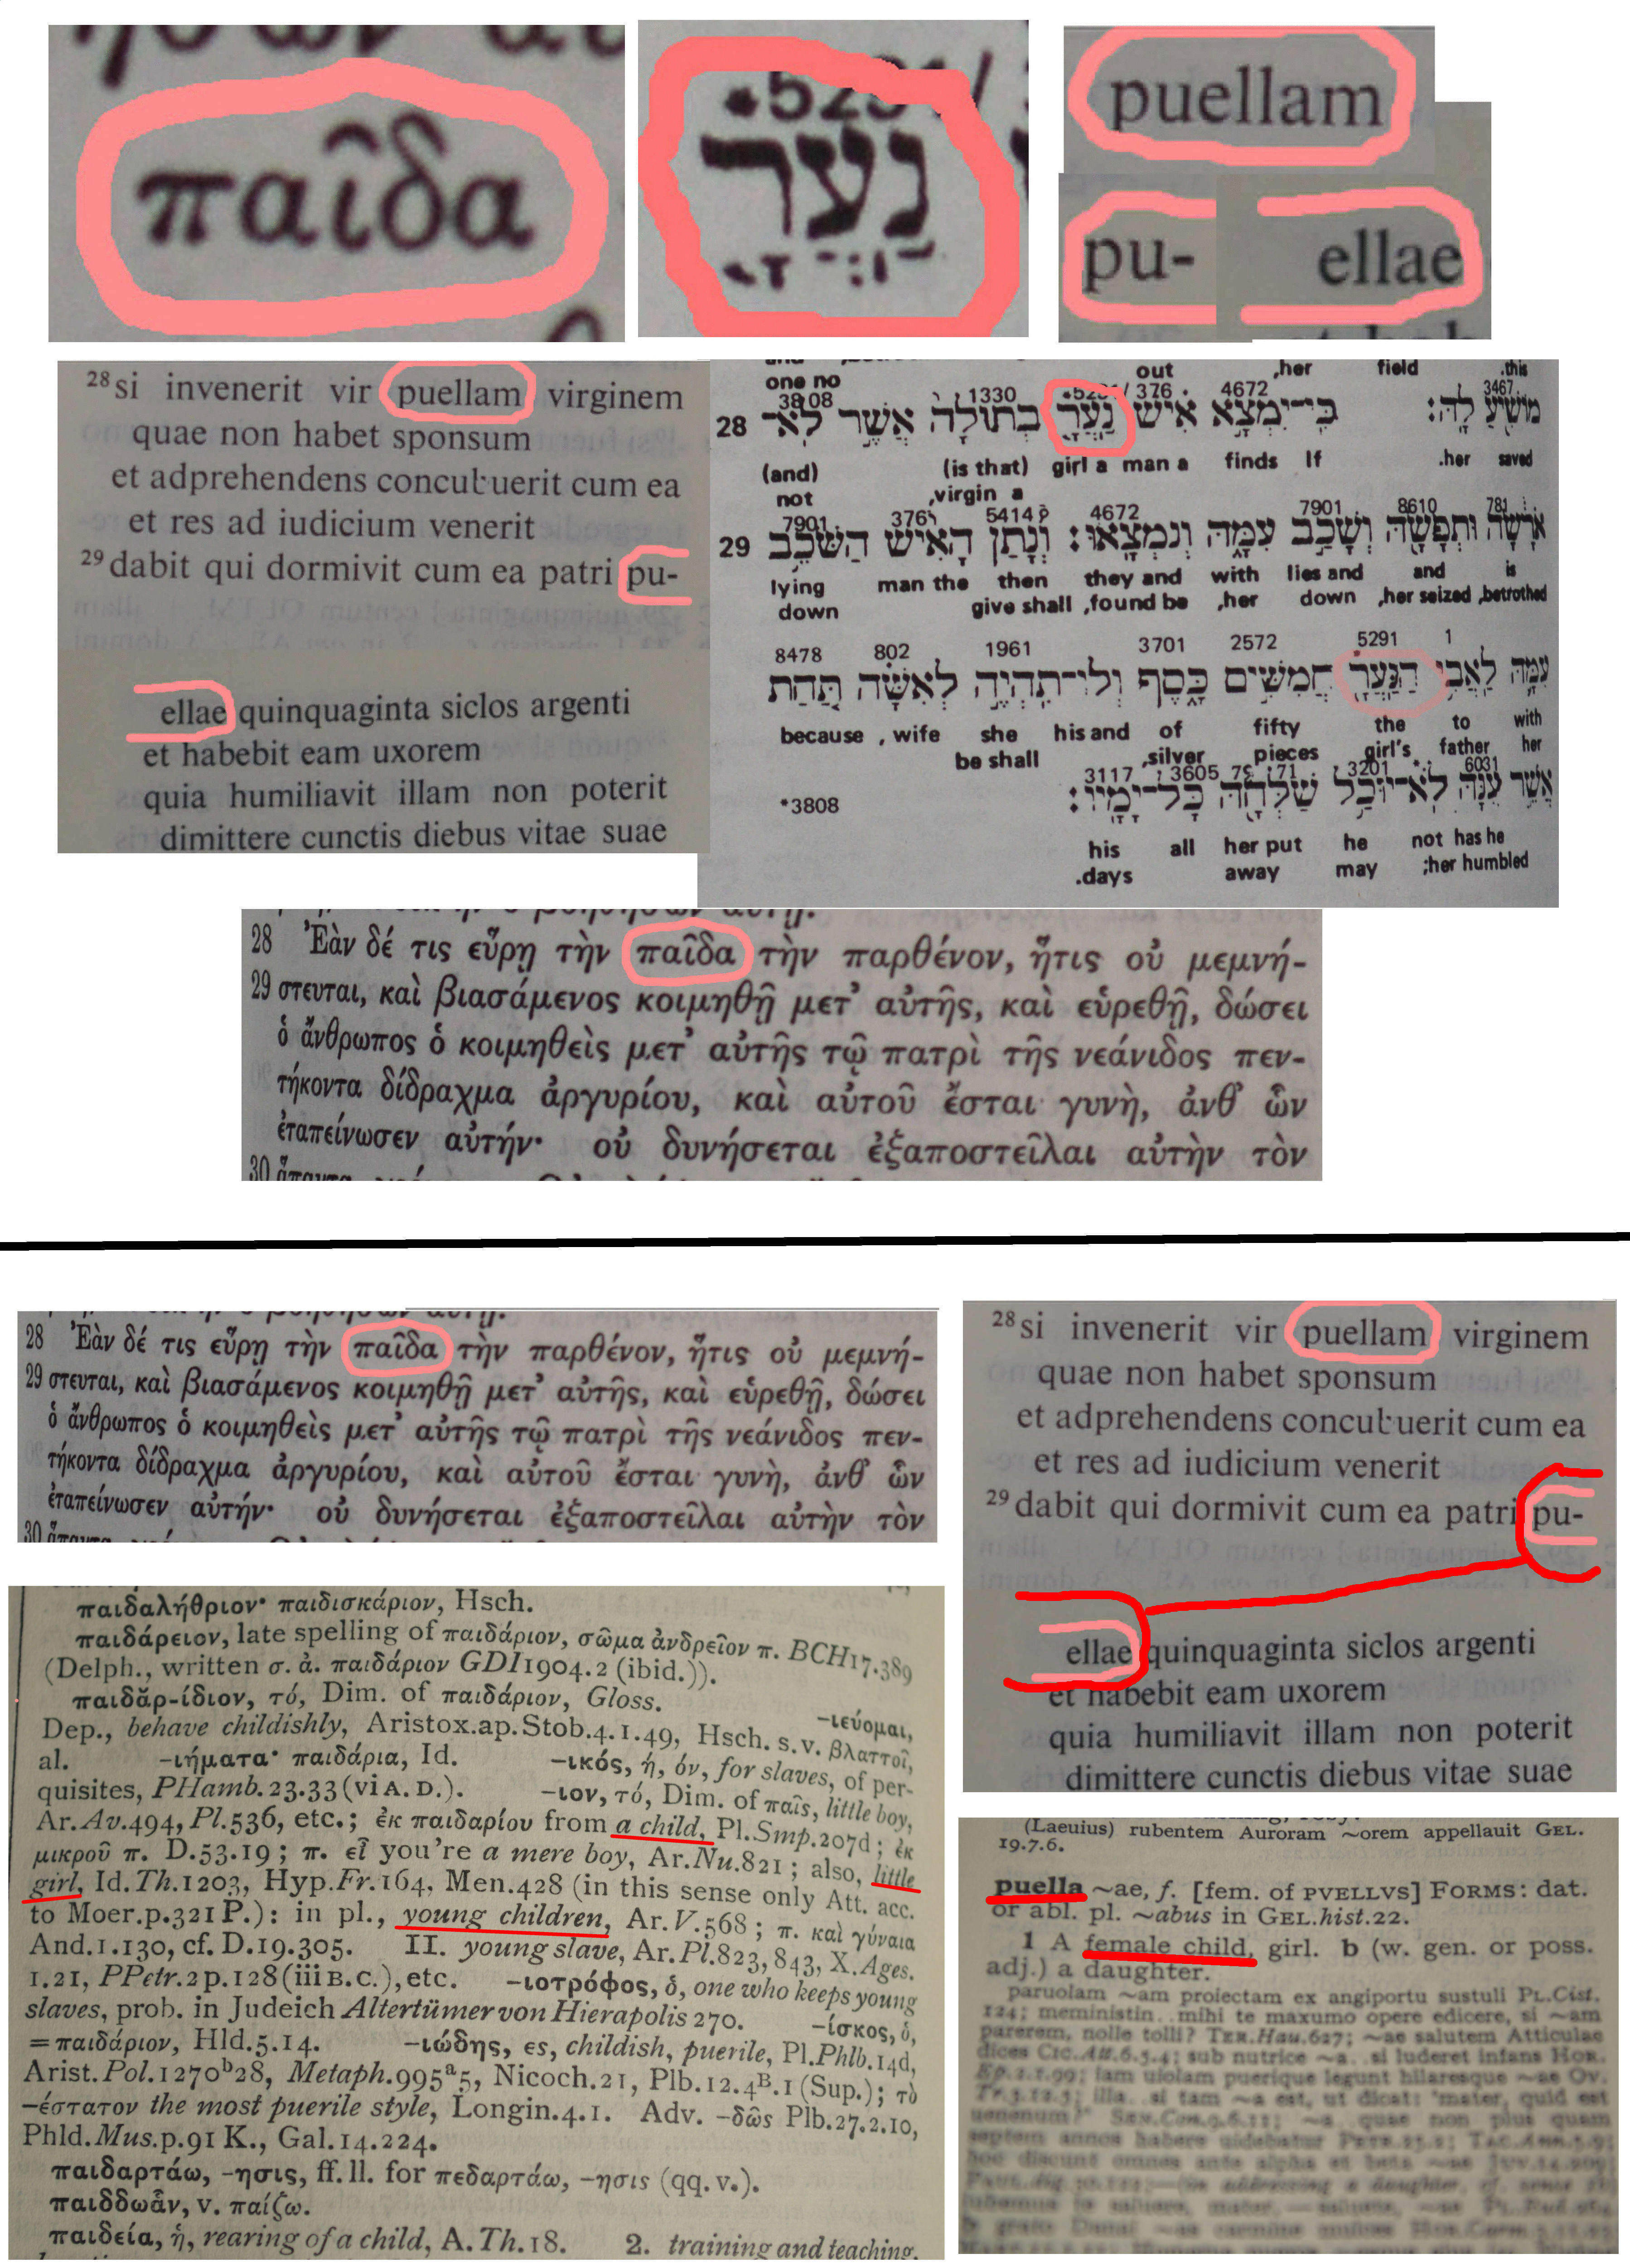 παῖδα
נַעֲרָ
puellam
pu-
ellae
28 si invenerit vir puellam virginem
quae non habet sponsum
et adprehendens concubuerit cum ea
et res ad iudicium venerit
29 dabit qui dormivit cum ea patri pu-
ellae quinquaginta siclos argenti
et habebit eam uxorem
quia humiliavit illam non poterit
dimittere cunctis diebus vitae suae
one no out ,her field .this
3808 1330 376 4672 3467
28 מוֹשִׁיעַ לָהּ: כִּי־יִמְצָא אִישׁ נַעֲרָ בְתוּלָה אֲשֶׁר לֹא־
(and) (is that) girl a man a finds If .her saved
not ,virgin a
7901 376 5414 4672 7901 8610 781
29 אֹרָשָׂה וּתְפָשָׂהּ וְשָׁכַב עִמָּהּ וְנִמְצָאוּ: וְנָתַן הָאִישׁ הַשֹּׁכֵב
lying man the then they and with lies and and is
down give shall ,found be ,her down ,her seized ,betrothed
8478 802 1961 3701 2572 5291 1
עִמָּהּ לַאֲבִי הַנַּעֲרָ חֲמִשִּׁים כָּסֶף וְלוֹ־תִהְיֶה לְאִשָּׁה תַּחַת
because , wife she his and of fifty the to with
be shall ,silver pieces girl's father her
3117 3605 71 3201 6031
אֲשֶׁר עִנָּהּ לֹא־יוּכַל שַׁלְּחָהּ כָּל־יָמָיו:
*3808
his all her put he not has he
.days away may ;her humbled
28 Ἐὰν δέ τις εὕρῃ τὴν παῖδα τὴν παρθένον, ἥτις οὐ μεμνή-
29 στευται, καὶ βιασάμενος κοιμηθῇ μετ’ αὐτῆς, καὶ εὑρεθῇ, δώσει
ὁ ἄνθρωπος ὁ κοιμηθεὶς μετ’ αὐτῆς τῷ πατρὶ τῆς νεάνιδος πεν-
τήκοντα δίδραχμα ἀργυρίου, καὶ αὐτοῦ ἔσται γυνὴ, ἀνθ’ ὧν
ἐταπείνωσεν αὐτήν· οὐ δυνήσεται ἐξαποστεῖλαι αὐτὴν τὸν
30
28 Ἐὰν δέ τις εὕρῃ τὴν παῖδα τὴν παρθένον, ἥτις οὐ μεμνή-
29 στευται, καὶ βιασάμενος κοιμηθῇ μετ’ αὐτῆς, καὶ εὑρεθῇ, δώσει
ὁ ἄνθρωπος ὁ κοιμηθεὶς μετ’ αὐτῆς τῷ πατρὶ τῆς νεάνιδος πεν-
τήκοντα δίδραχμα ἀργυρίου, καὶ αὐτοῦ ἔσται γυνὴ, ἀνθ’ ὧν
ἐταπείνωσεν αὐτήν· οὐ δυνήσεται ἐξαποστεῖλαι αὐτὴν τὸν
30
28 si invenerit vir puellam virginem
quae non habet sponsum
et adprehendens concubuerit cum ea
et res ad iudicium venerit
29 dabit qui dormivit cum ea patri pu-
ellae quinquaginta siclos argenti
et habebit eam uxorem
quia humiliavit illam non poterit
dimittere cunctis diebus vitae suae
παιδαλήθριον· παιδισκάριον, Hsch.
παιδάρειον, late spelling of παιδάριον, σῶμα ἀνδρεῖον π. BCH17.389
(Delph., written σ. ἀ. παιδάριον GDI1904.2 (ibid.)).
παιδᾰρ-ίδιον, τό, Dim. of παιδάριον, Gloss. -ιεύομαι,
Dep., behave childishly, Aristox.ap.Stob.4.1.49, Hsch. s.v. βλαττοῖ,
al. -ιήματα· παιδάρια, Id. -ικός, ή, όν, for slaves, of per-
quisites, PHamb.23.33 (vi A. D.). -ιον, τό, Dim. of παῖς, little boy,
Ar.Av.494, Pl.536, etc.; ἐκ παιδαρίου from a child, Pl.Smp.207d; ἐκ
μικροῦ π. D.53.19; π. εἶ you're a mere boy, Ar.Nu.821; also, little
girl, Id.Th.1203, Hyp.Fr.164, Men.428 (in this sense only Att. acc.
to Moer.p.321 P.): in pl., young children, Ar.V.568; π. καὶ γύναια
And.1.130, cf. D.19.305. II. young slave, Ar.Pl.823, 843, X.Ages.
1.21, PPetr.2p.128 (iii B.C.), etc. -ιοτρόφος, ὁ, one who keeps young
slaves, prob. in Judeich Altertümer von Hierapolis 270. -ίσκος, ὁ,
=παιδάριον, Hld.5.14. -ιώδης, ες, childish, puerile, Pl.Phlb.14d,
Arist.Pol.1270b28, Metaph.995a5, Nicoch.21, Plb.12.4B.1 (Sup.); τὸ
-έστατον the most puerile style, Longin.4.1. Adv. -δῶς Plb.27.2.10,
Phld.Mus.p.91 K., Gal.14.224.
παιδαρτάω, -ησις, ff. ll. for πεδαρτάω, -ησις (qq. v.).
παιδδωἄν, v. παίζω.
παιδεία, ἡ, rearing of a child, A. Th.18. 2. training and teaching,
(Laeuius) rubentem Auroram ~orem appellauit GEL.
19.7.6.
puella ~ae, f. [fem. of PVELLVS] FORMS: dat.
or abl. pl. ~abus in GEL.hist.22.
1 A female child, girl. b (w. gen. or poss.
adj.) a daughter.
paruolam ~am proiectam ex angiportu sustuli PL.Cist.
124; meministin.. mihi te maxumo opere edicere, si ~am
parerem, nolle tolli? TER.Hau.627; ~ae salutem Atticulae
dices CIC.Att.6.5.4; sub nutrice ~a. si luderet infans HOR.